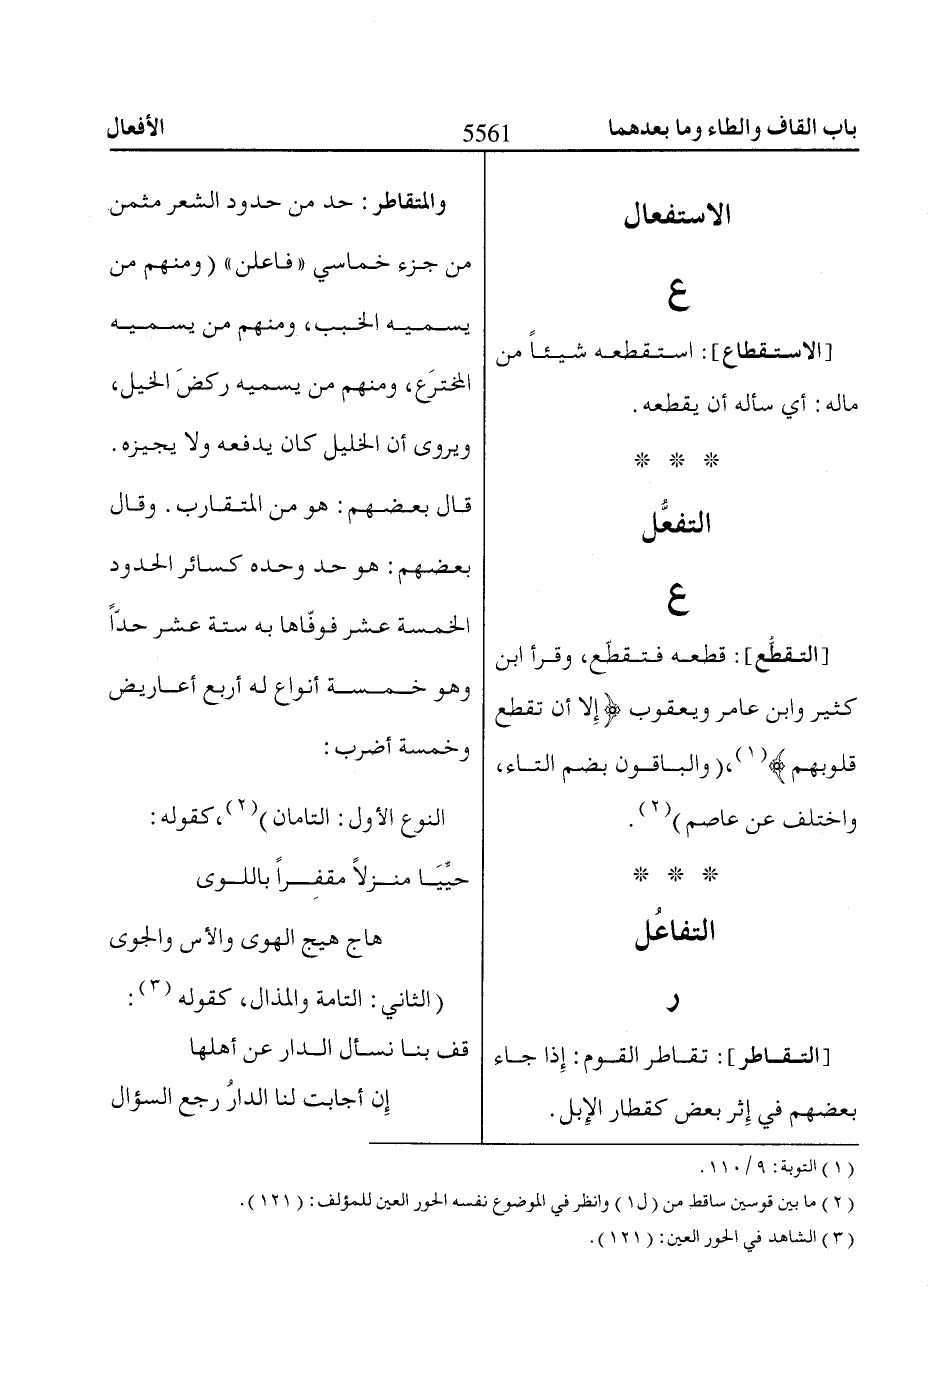 باب القاف والطاء وما بعدهما
5561
الأفعال
الاستفعال
ع
[الاستقطاع]: استقطعه شيئاً من
ماله: أي سأله أن يقطعه.
* * *
التفعُّل
ع
[التقطُّع]: قطعه فتقطّع، وقرأ ابن
كثير وابن عامر ويعقوب ﴿إلا أن تقطع
قلوبهم﴾(١)،( والباقون بضم التاء،
واختلف عن عاصم)(٢).
* * *
التفاعُل
ر
[التقاطر]: تقاطر القوم: إذا جاء
بعضهم في إثر بعض كقطار الإبل.
والمتقاطر: حد من حدود الشعر مثمن
من جزء خماسي «فاعلن» (ومنهم من
يسميه الخبب، ومنهم من يسميه
المخترَع، ومنهم من يسميه ركضَ الخيل،
ويروى أن الخليل كان يدفعه ولا يجيزه.
قال بعضهم: هو من المتقارب. وقال
بعضهم: هو حد وحده كسائر الحدود
الخمسة عشر فوفّاها به ستة عشر حدّاً
وهو خمسة أنواع له أربع أعاريض
وخمسة أضرب:
النوع الأول: التامان)(٢)،كقوله:
حيِّيَا منزلاً مقفراً باللوى
هاج هيج الهوى والأس والجوى
(الثاني: التامة والمذال، كقوله(٣):
قف بنا نسأل الدار عن أهلها
إن أجابت لنا الدارُ رجع السؤال
(١) التوبة: ٩/ ١١٠.
(٢) ما بين قوسين ساقط من (ل١) وانظر في الموضوع نفسه الحور العين للمؤلف: (١٢١).
(٣) الشاهد في الحور العين: (١٢١).